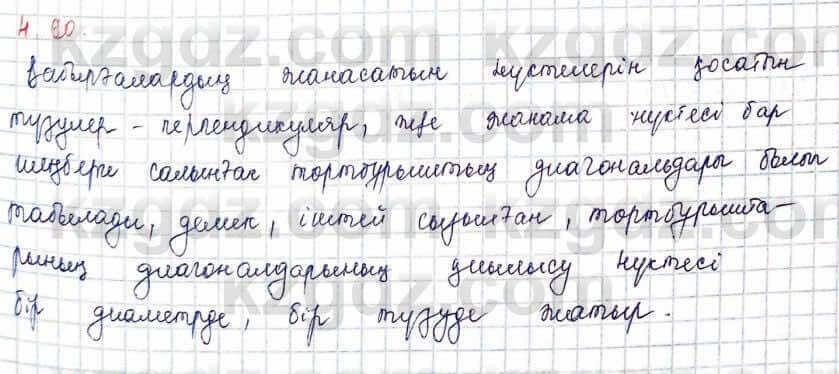 4.20.
Қабырғалардың жанасатын нүктелерін қосатын
түзулер - перпендикуляр, және жанама нүктесі бар
шеңберге салынған төртбұрыштың диагональдары болып
табылады, демек, іштей сызылған, төртбұрышта-
рының диагоналдарының қиылысу нүктесі
бір диаметрде, бір түзуде жатыр.